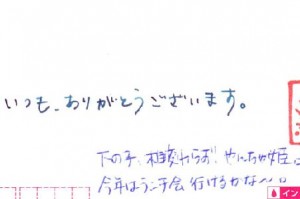 いつも、ありがとうございます。
下の子、相変わらず!やんちゃ姫
今年はランチ会行けるかな〜
イン